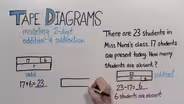 TAPE DIAGRAMS
modeling 2-digit
addition & subtraction
17 6
?
add
17+6=23
There are 23 students in
Miss Nora's class. 17 students
are present today. How many
students are absent?
23
17 ?
subtract
23-17=6
6 students are absent